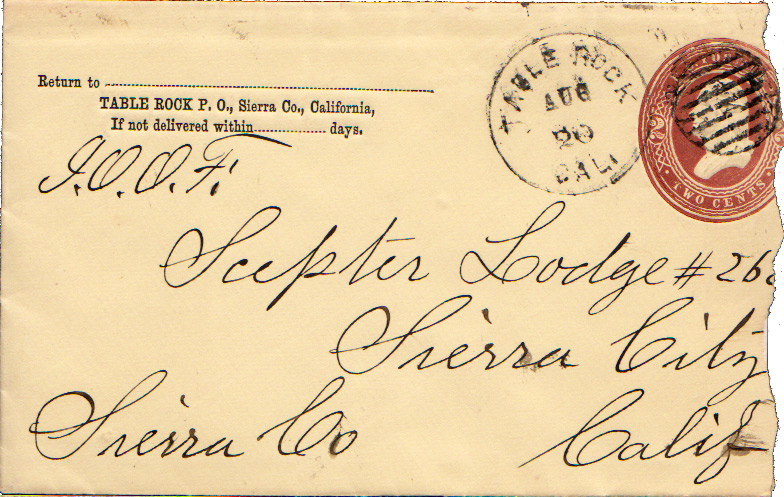 Return to
TABLE ROCK P. O., Sierra Co., California,
If not delivered within ............ days.
TABLE ROCK
AUG
20
CAL.
TWO CENTS
I.O.O.F.
Scepter Lodge # 26
Sierra City
Sierra Co Calif